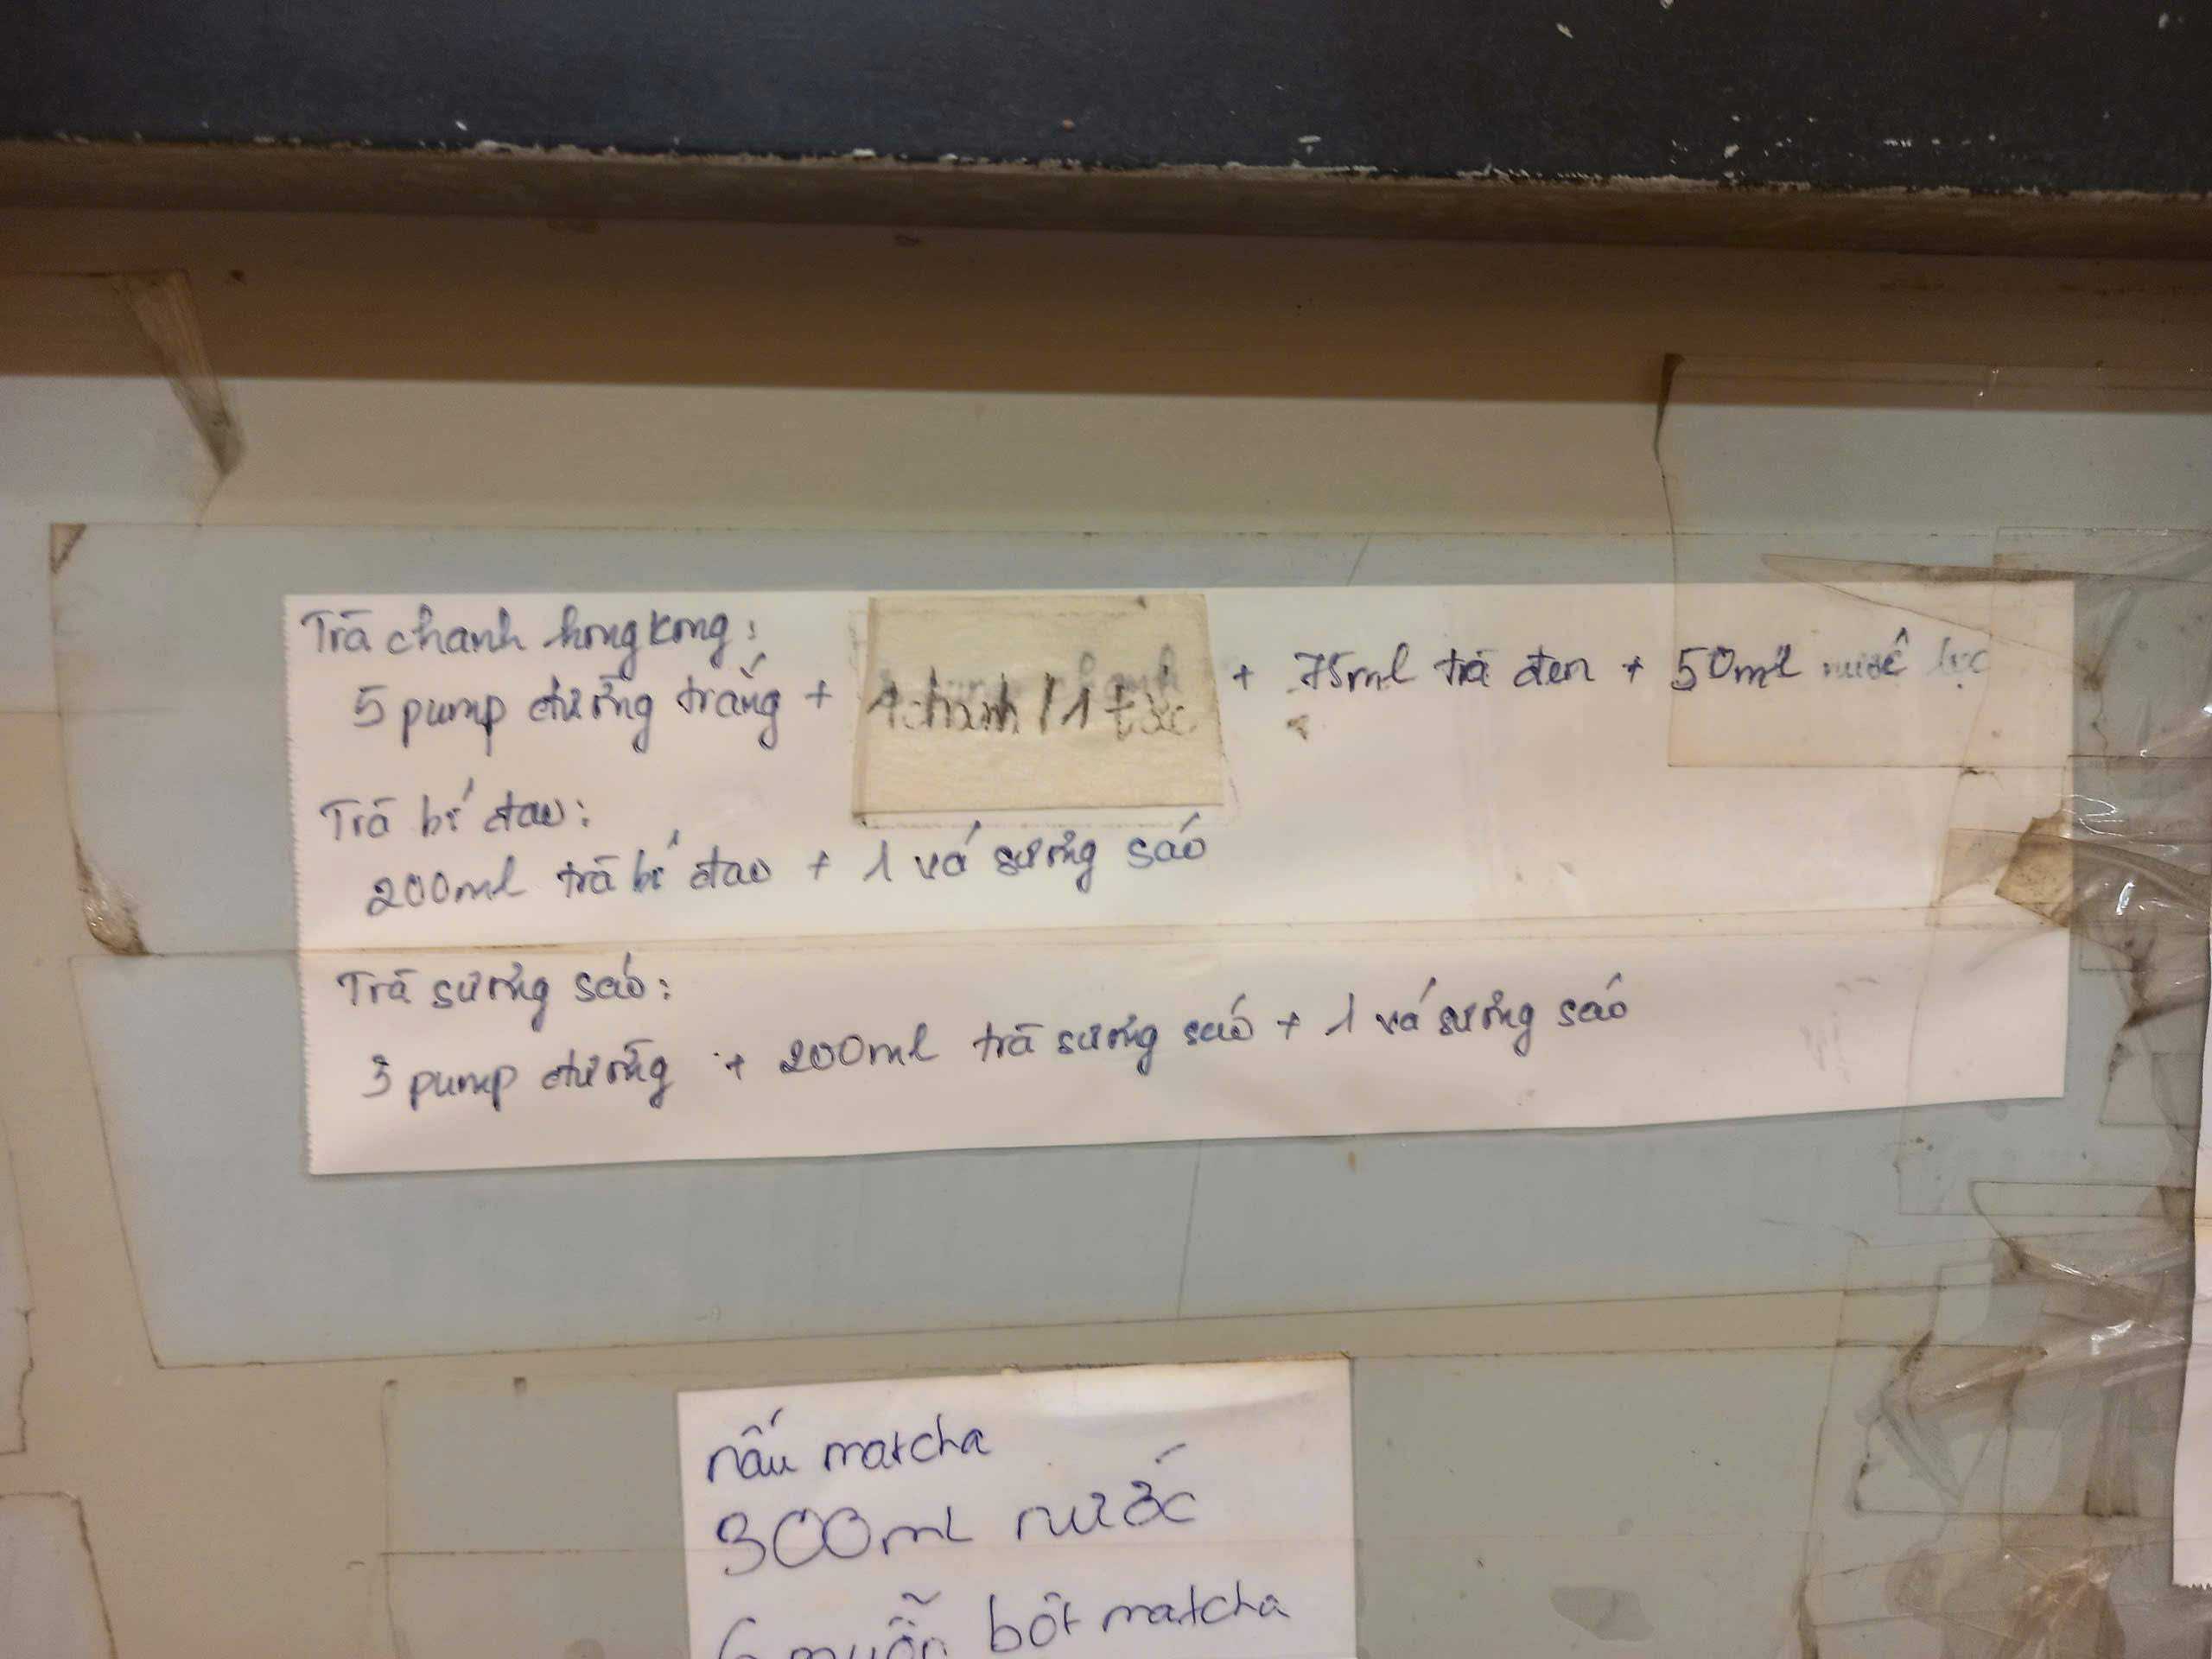 Trà chanh hongkong:
5 pump đường trắng + 1 chanh / 1 tắc + 75ml trà đen + 50ml nước lọc
Trà bí đao:
200ml trà bí đao + 1 vá sương sáo
Trà sương sáo:
3 pump đường + 200ml trà sương sáo + 1 vá sương sáo
nấu matcha
300ml nước
6 muỗn bột matcha